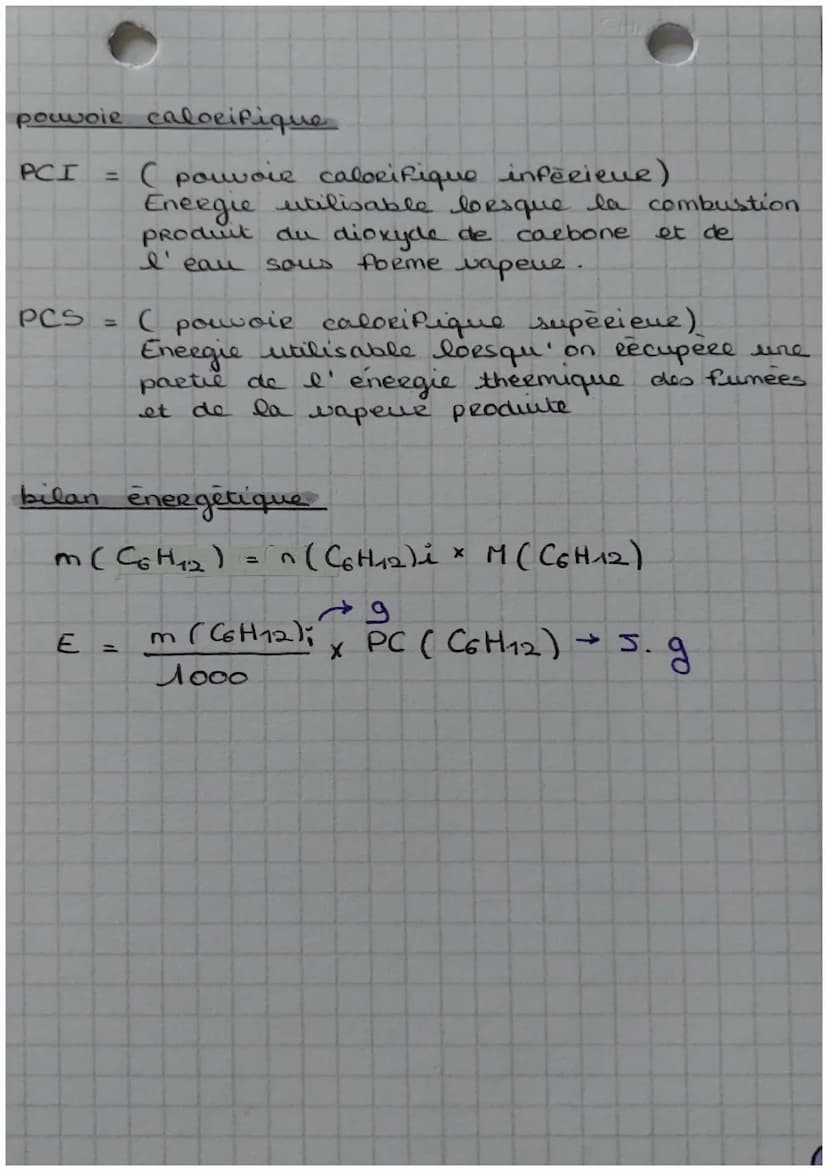 pouvoir calorifique
PCI = ( pouvoir calorifique inférieur)
Energie utilisable lorsque la combustion
produit du dioxyde de carbone et de
l'eau sous forme vapeur.
PCS = ( pouvoir calorifique supérieur)
Energie utilisable lorsqu'on récupère une
partie de l'énergie thermique des fumées
et de la vapeur produite
bilan énergétique
m ( C6H12 ) = n (C6H12)i × M ( C6H12)
E = m (C6H12)i / 1000 × PC ( C6H12) → J. g
→ g